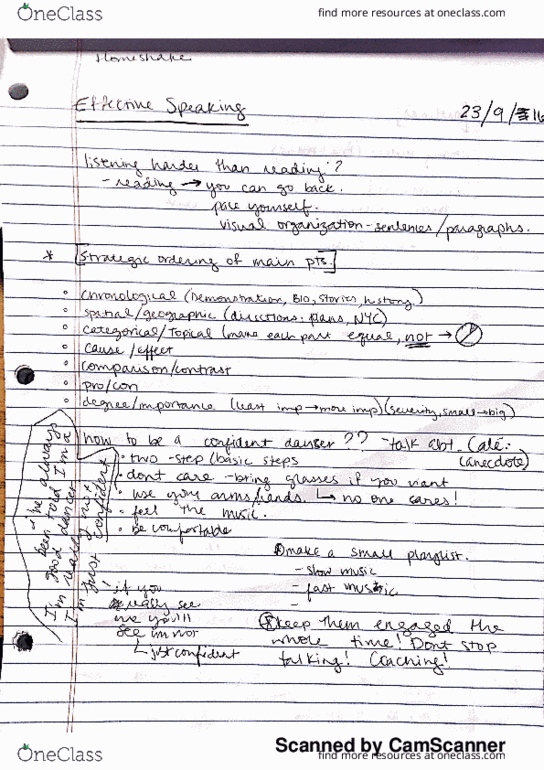 OneClass
find more resources at oneclass.com
Homeshake
Effective Speaking
23/9/16
listening harder than reading?
- reading → you can go back.
pace yourself.
visual organization - sentences/paragraphs.
* [Strategic ordering of main pts.]
• chronological (Demonstration, Bio, Stories, history)
• spatial/geographic (directions, plans, NYC)
• categorical/Topical (make each part equal, not →
• cause/effect
• comparison/contrast
• pro/con
• degree/importance (least imp → more imp) (severity, small → big)
how to be a confident danser?? - talk abt.
(anecdote)
• two-step/basic steps
• dont care - bring glasses if you want
↳ no one cares!
• use your arms/hands.
• feel the music.
• be comfortable
been told I'm a
good dancer
I'm really not
I'm just confident
if you
really see
me you'll
see im not
↳ just confident
① make a small playlist.
- slow music
- fast music
-
② keep them engaged the
whole time! Dont stop
talking! Coaching!
Scanned by CamScanner
OneClass
find more resources at oneclass.com